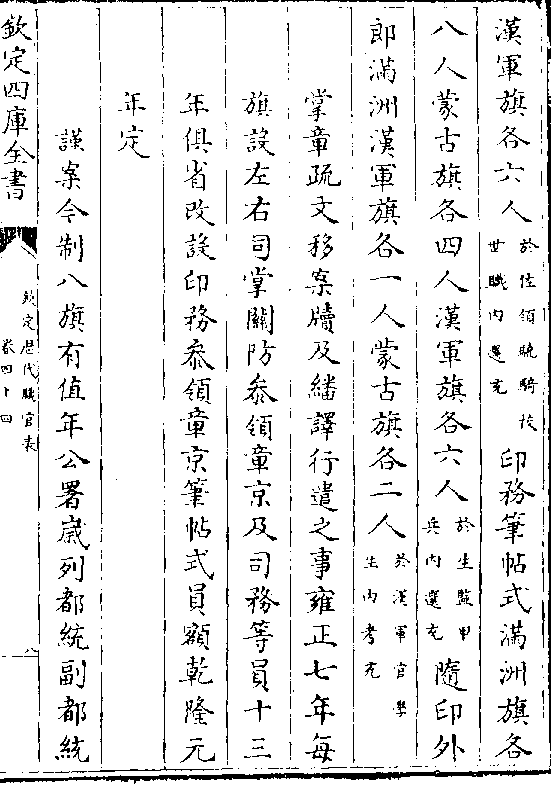 漢軍旗各六人於佐領驍騎校世職内選充印務筆帖式滿洲旗各
八人蒙古旗各四人漢軍旗各六人於生監甲兵内選充隨印外
郎滿洲漢軍旗各一人蒙古旗各二人於漢軍官學生内考充
掌章疏文移案牘及繙譯行遣之事雍正七年每
旗設左右司掌關防叅領章京及司務等員十三
年俱省改設印務叅領章京筆帖式員額乾隆元
年定
謹案今制八旗有值年公署嵗列都統副都統
欽定四庫全書
欽定歴代職官表
卷四十四
八